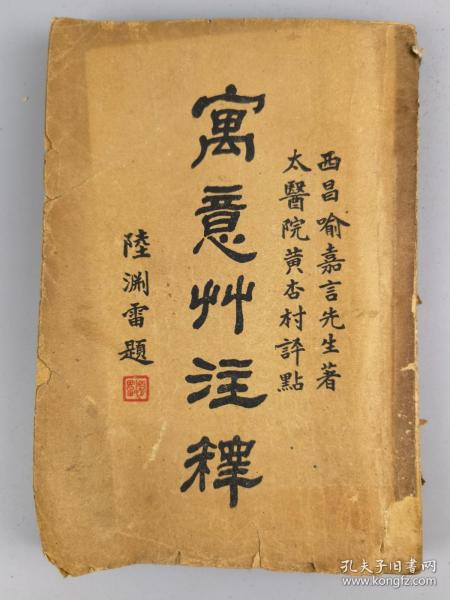 西昌喻嘉言先生著
太醫院黄杏村評點
寓意艸注釋
陸渊雷題
孔夫子旧书网
www.kongfz.com